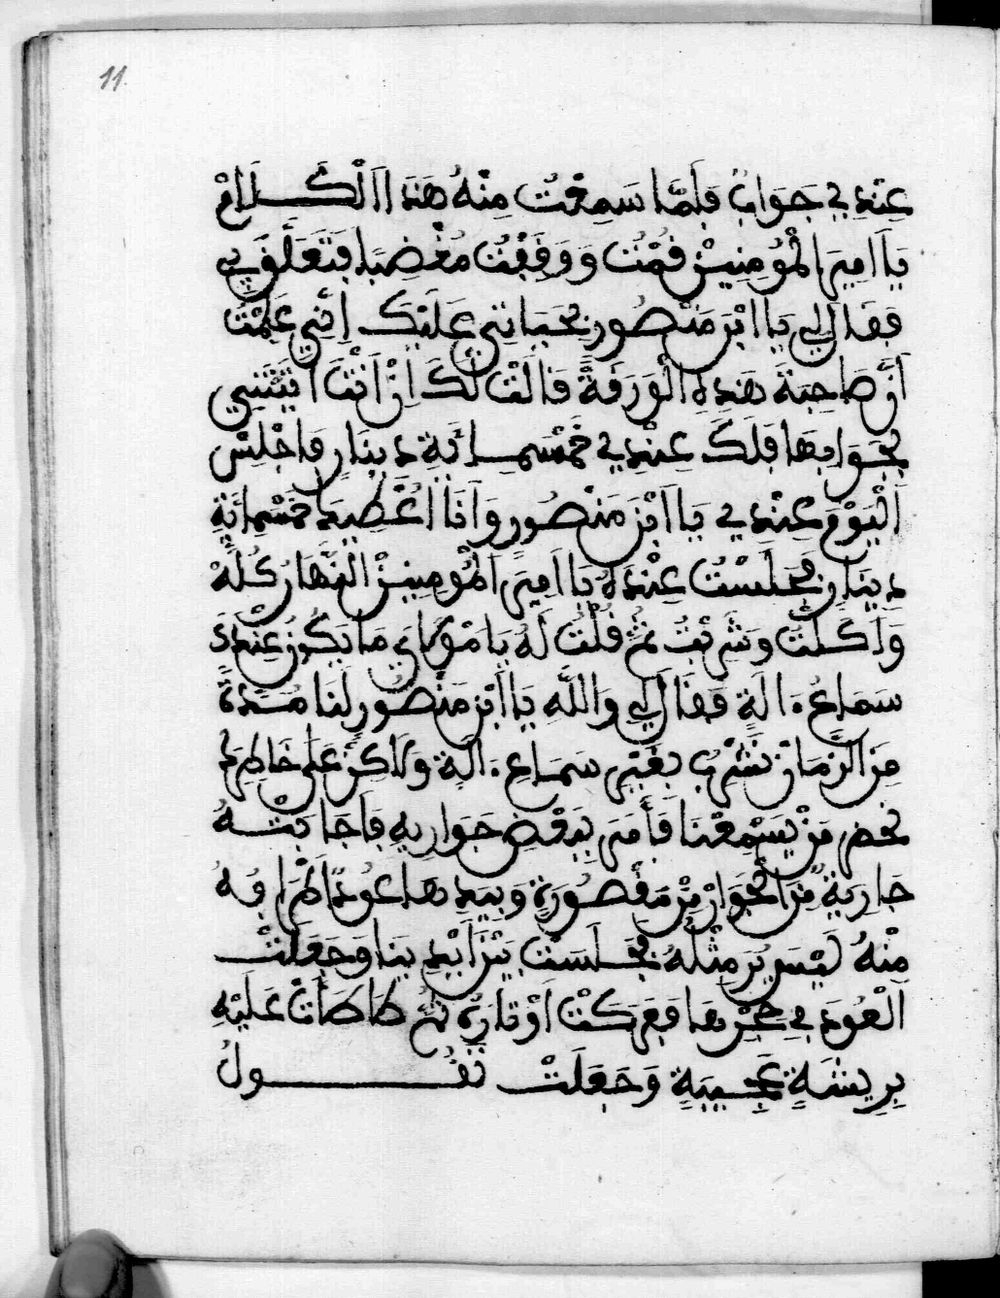 11
عِنْدِي جَوَابٌ فَلَمَّا سَمِعْتُ مِنْهُ هَذَا الْكَلَامْ
يَا امِيرَ الْمُومِنِينْ قُمْتُ وَوَقَفْتُ مُغْضِبًا فَتَعَلَّقَ بِي
فقال لِي يَا ابْنَ مَنْصُورٍ بِحَيَاتِي عَلَيْكَ اِنِّي عَلِمْتُ
أَنَّ صَاحِبَةَ هَذِهِ الْوَرَقَةَ قَالَتْ لَكَ اِنْ اَنْتَ اَتَيْتَنِي
بِجَوَابِهَا فَلَكَ عِنْدِي خَمْسمِائَةِ دِينَارٍ فَاجْلِسْ
الْيَوْمَ عِنْدِي يَا ابْنَ مَنْصُورٍ وَاَنَا اُعْطِيكَ خَمْسُمِائَةِ
دِينَارٍ فَجَلَسْتُ عِنْدَهُ يَا امِيرَ الْمُومِنِينْ النَّهَارَ كُلَّهْ
وَاَكَلْتُ وَشَرِبْتُ ثُمَّ قُلْتُ لَهُ يَا مَوْلَاي مَا يَكُونُ عِنْدَكَ
سَمَاعُ ءَالَةٍ فَقَالَ لِي وَاللَّهِ يَا ابْنَ مَنْصُورٍ لَنَا مُدَّةً
مِنَ الزَّمَانْ نَشْرَبُ بِغَيْرِ سَمَاعِ ءَالَةٍ وَلَاكِنْ عَلَى خَاطِرِكَ
نحضر مَنْ يُسْمِعْنَا فَأَمَرَ بِبَعْضِ جَوَارِيهِ فَأَجَابَتْهُ
جَارِيَةٌ مِنَ الْجَوَارْ مِنْ مَقْصُورَةٍ وَبِيَدِهَا عُودًا لَمْ اَرَ
مِنْهُ لَيْسَ يُرَ مِثْلُهُ فَجَلَسَتْ بَيْنَ اَيْدِينَا وَجَعَلَتْ
الْعُودَ فِي حِجْرِهَا فَعَرَكَتْ اَوْتَارَهُ ثُمَّ طَاطَاَتْ عَلَيْهِ
بِرِيشَةٍ عَجِيبَةٍ وَجَعَلَتْ تَقُولُ